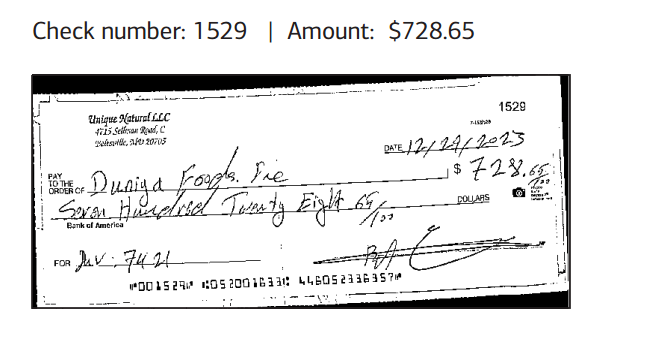 Check number: 1529 | Amount: $728.65
1529
Unique Natural LLC
4715 Sellman Road, C
Beltsville, MD 20705
DATE 12/29/2023
PAY
TO THE
ORDER OF Duniya Foods. Inc $ 728.65/100
Seven Hundred Twenty Eight 65/100 DOLLARS
Bank of America
FOR Inv. 7421
⑈001529⑈ ⑆052001633⑆ 446052336357⑈